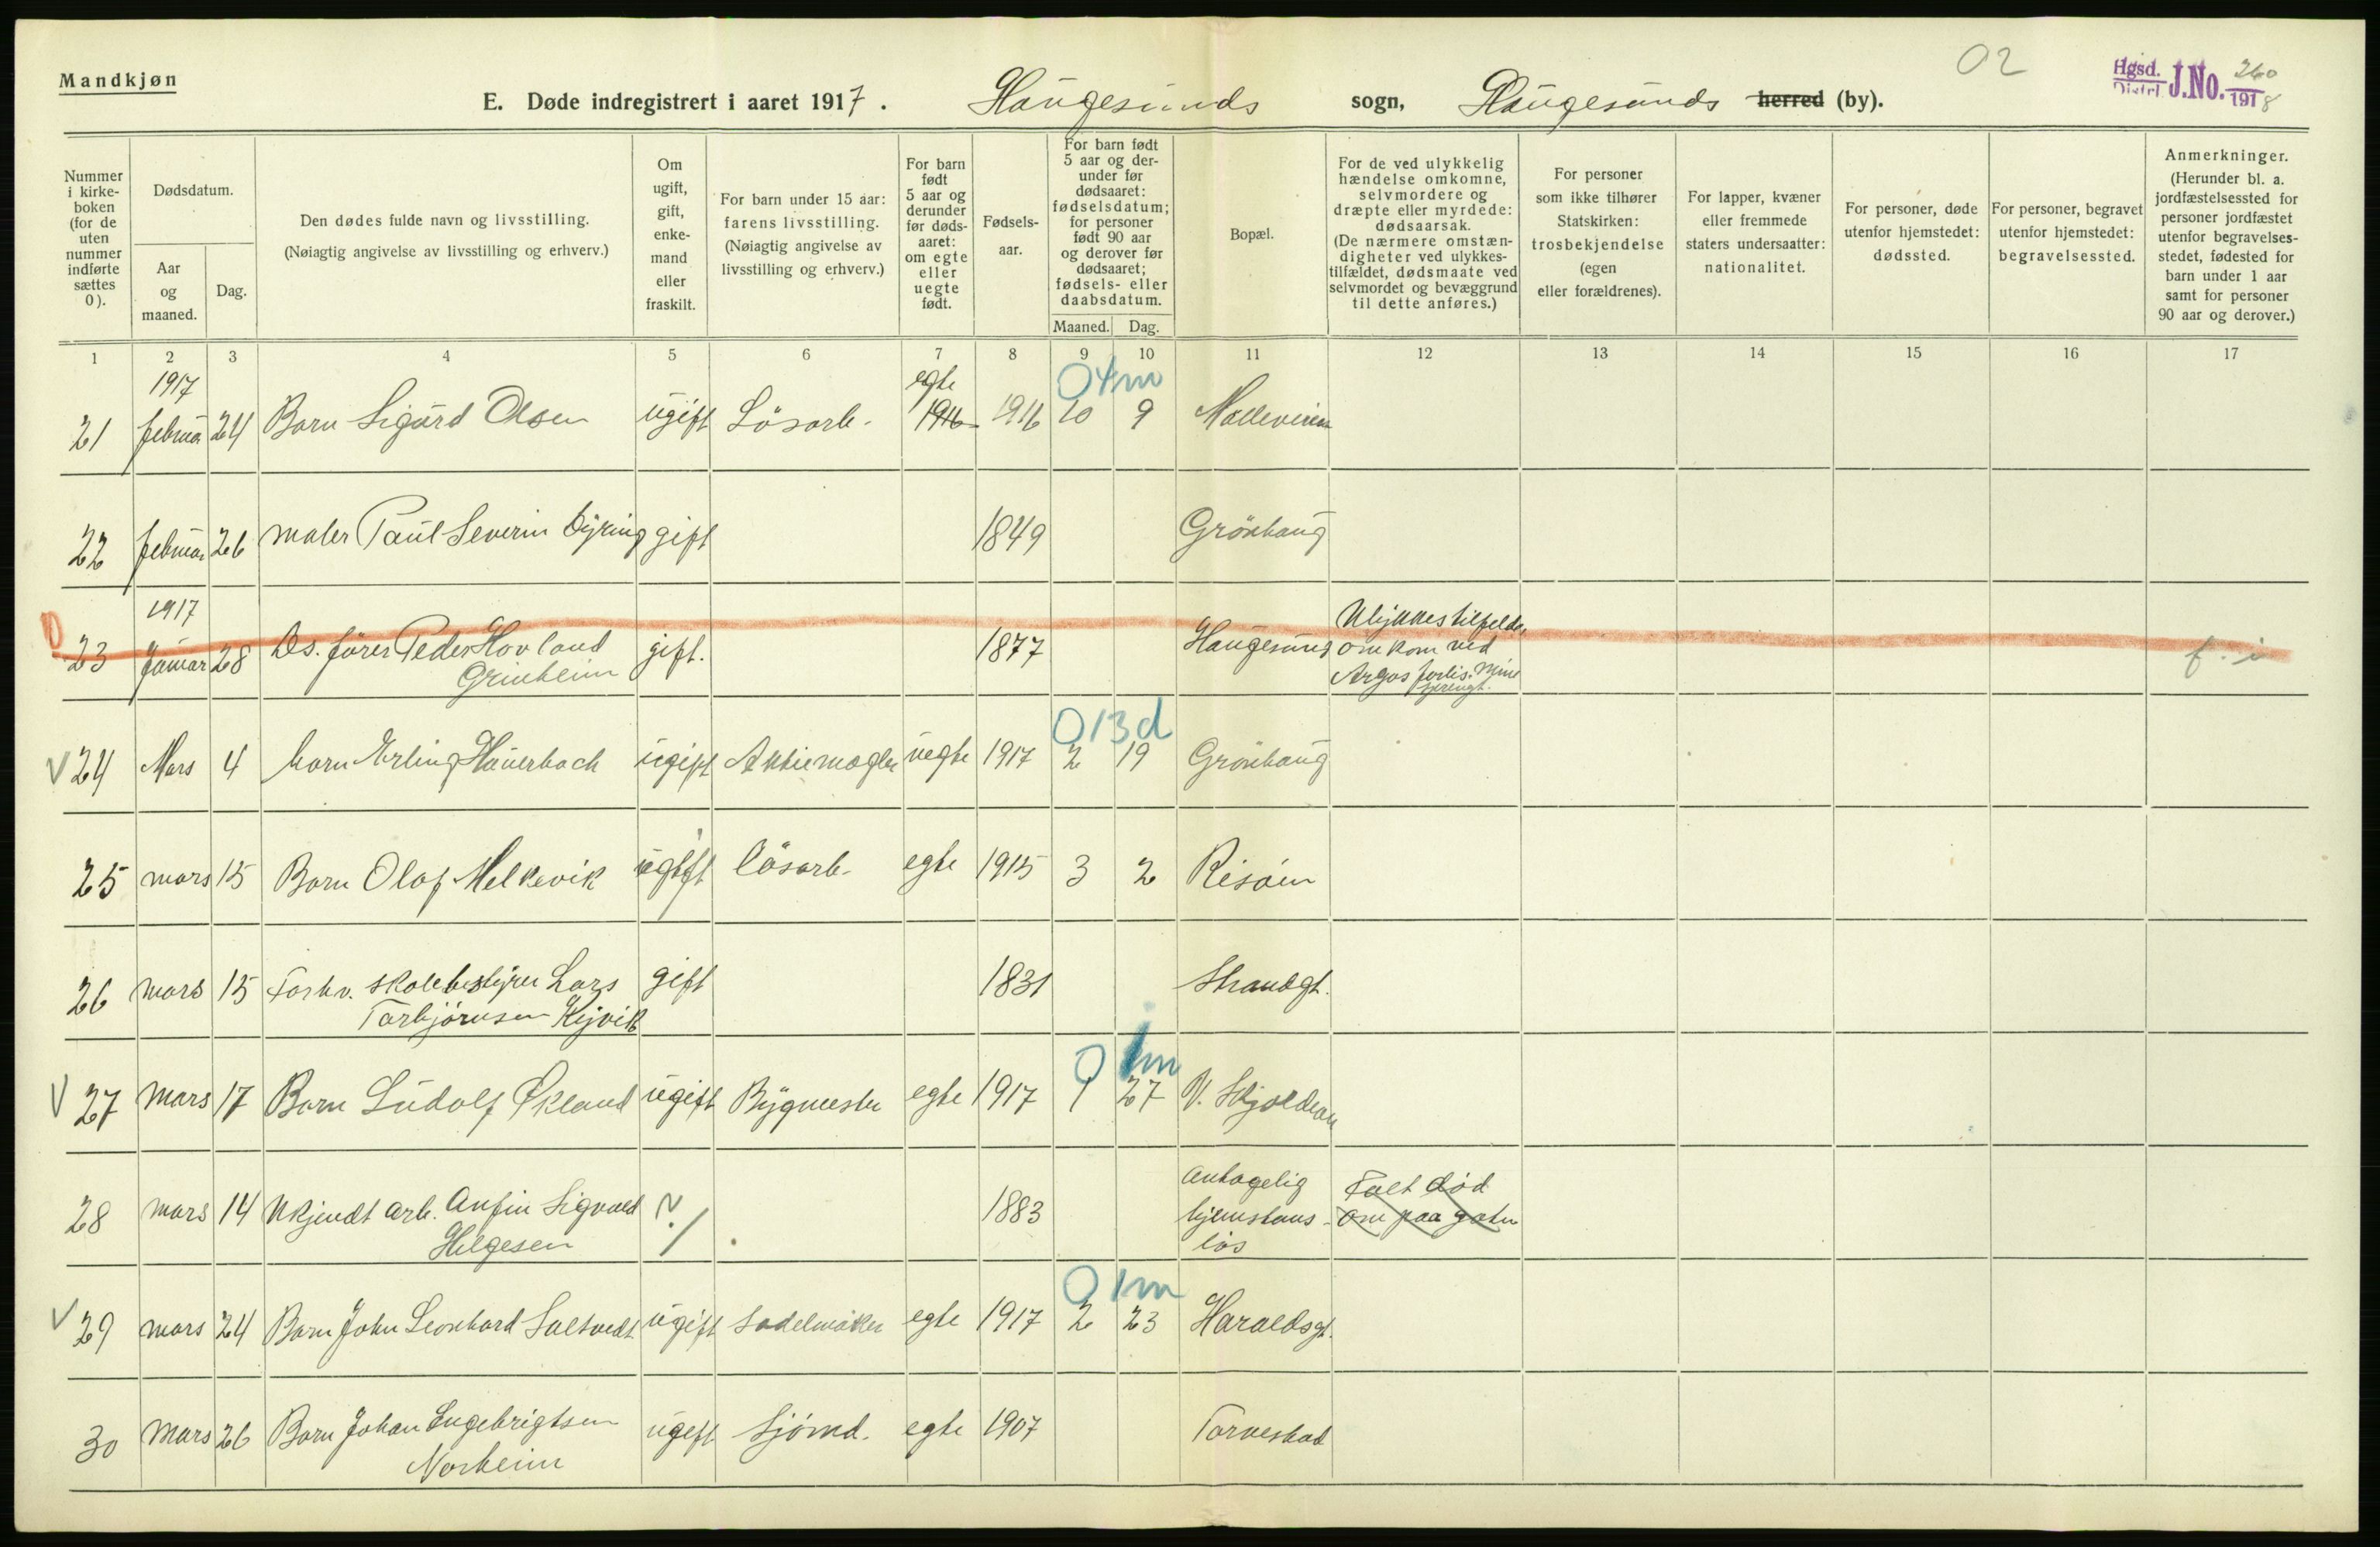 Mandkjøn
E. Døde indregistrert i aaret 1917. Haugesunds sogn, Haugesunds herred (by).
02
Hgsd. Distrl. J.No. 260 / 1918
Nummer i kirke- boken (for de uten nummer indførte sættes 0).
Dødsdatum.
Aar og maaned.
Dag.
Den dødes fulde navn og livsstilling.
(Nøiagtig angivelse av livsstilling og erhverv.)
Om ugift, gift, enke- mand eller fraskilt.
For barn under 15 aar: farens livsstilling. (Nøiagtig angivelse av livsstilling og erhverv.)
For barn født 5 aar og derunder før døds- aaret: om egte eller uegte født.
Fødsels- aar.
For barn født 5 aar og der- under før dødsaaret: fødselsdatum; for personer født 90 aar og derover før dødsaaret; fødsels- eller daabsdatum.
Maaned. Dag.
Bopæl.
For de ved ulykkelig hændelse omkomne, selvmordere og dræpte eller myrdede: dødsaarsak. (De nærmere omstæn- digheter ved ulykkes- tilfældet, dødsmaate ved selvmordet og bevæggrund til dette anføres.)
For personer som ikke tilhører Statskirken: trosbekjendelse (egen eller forældrenes).
For lapper, kvæner eller fremmede staters undersaatter: nationalitet.
For personer, døde utenfor hjemstedet: dødssted.
For personer, begravet utenfor hjemstedet: begravelsessted.
Anmerkninger. (Herunder bl. a. jordfæstelsessted for personer jordfæstet utenfor begravelses- stedet, fødested for barn under 1 aar samt for personer 90 aar og derover.)
1 2 3 4 5 6 7 8 9 10 11 12 13 14 15 16 17
1917 egte 0 4m
21 februa 24 Barn Sigurd Olsen ugift Lösarb. 1916 1916 10 9
22 februar 26 maler Paul Severin Dyring gift 1849 Grönhaug
1917 Ulykkestilfelde,
0 23 Januar 28 Ds. förer Peder Hovland gift. 1877 Haugesund omkom ved f. i
Grinheim Argos forlis. Mine
sprengt.
0 13 d
V 24 Mars 4 barn Erling Hauerbach ugift Aktiemægler uegte 1917 2 19 Grönhaug
25 mars 15 Barn Olaf Melkevik ugift lösarb. egte 1915 3 2 Risöen
26 mars 15 Forhv. skolebestyrer Lars gift 1831 Strandgt.
Torbjörnsen Kyvik
0 1m
V 27 Mars 17 Barn Ludolf Økland ugift Bygmester egte 1917 1 27 V. Skjoldeav
antagelig Falt död
28 mars 14 Ukjendt arb. Anfin Sigvald ? / . 1883 hjemstavns- om paa gaten
Helgesen lös
0 1m
V 29 mars 24 Barn John Leonhard Saltvedt ugift Sadelmaker egte 1917 2 23 Haraldsgt.
30 Mars 26 Barn Johan Engebrigtsen ugift Sjömd. egte 1907 Torvestad
Norheim